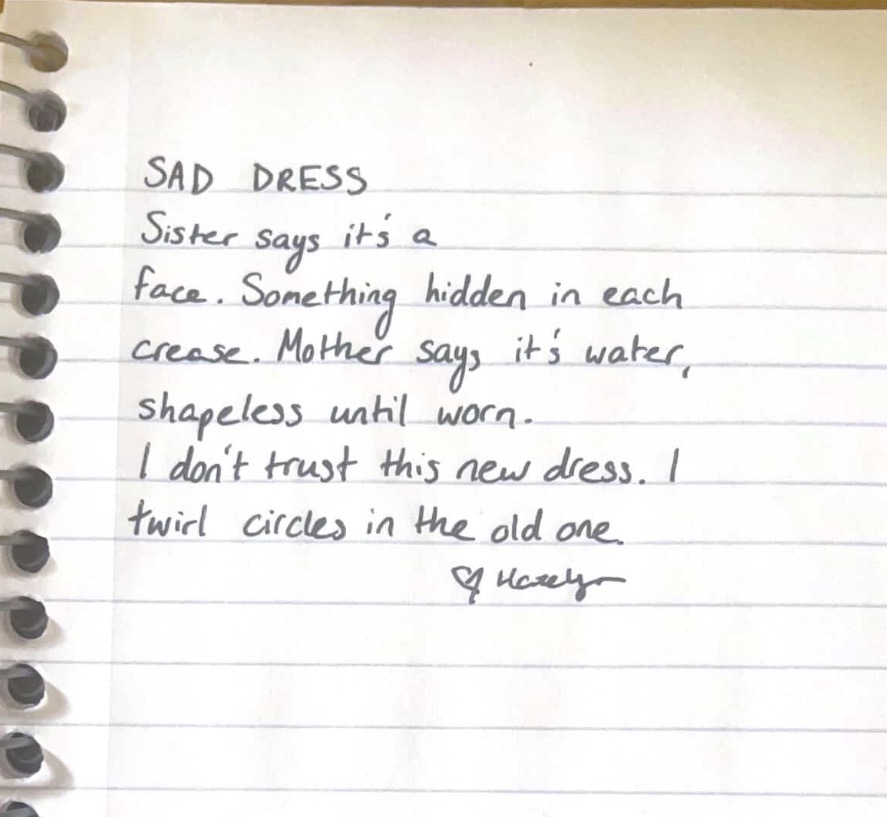 SAD DRESS
Sister says it's a
face. Something hidden in each
crease. Mother says it's water,
shapeless until worn.
I don't trust this new dress. I
twirl circles in the old one.